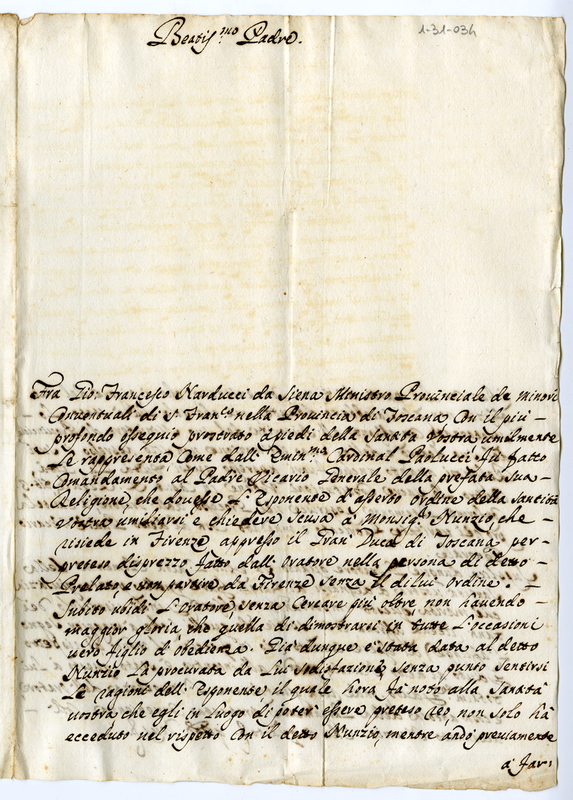 Beatis.mo Padre.
1-31-034
Fra Gio: Francesco Narducci da Siena Ministro Provinciale de minori
Conventuali di S. Fran.co nella Provincia di Toscana Con il più -
profondo ossequio prostrato à piedi della Santità Vostra umilmente
Le rappresenta, Come dall' Emin.mo Cardinal Paolucci fu fatto
Comandamento al Padre Vicario Generale della prefata sua -
Religione, che dovesse L'Esponente d'espresso ordine della Santità
Vostra umiliarsi e chiedere scusa à Monsig.r Nunzio, che -
risiede in Firenze appresso il Gran Duca di Toscana, per -
preteso disprezzo fatto dall' Oratore nella persona di detto -
Prelato, e non partire da Firenze senza il di lui ordine. -
Subito ubidì L'Oratore, senza Cercare più oltre, non havendo -
maggior gloria, che quella di dimostrarsi in tutte L'occasioni
vero figlio d'obedienza. Già dunque è stata data al detto
Nunzio La procurata da Lui sodisfazione, senza punto sentirsi
Le ragioni dell' Esponente il quale hora fà noto alla Santità
vostra che egli in Luogo di poter essere preteso reo, non solo hà
ecceduto nel rispetto Con il detto Nunzio, mentre andò previamente
à far: